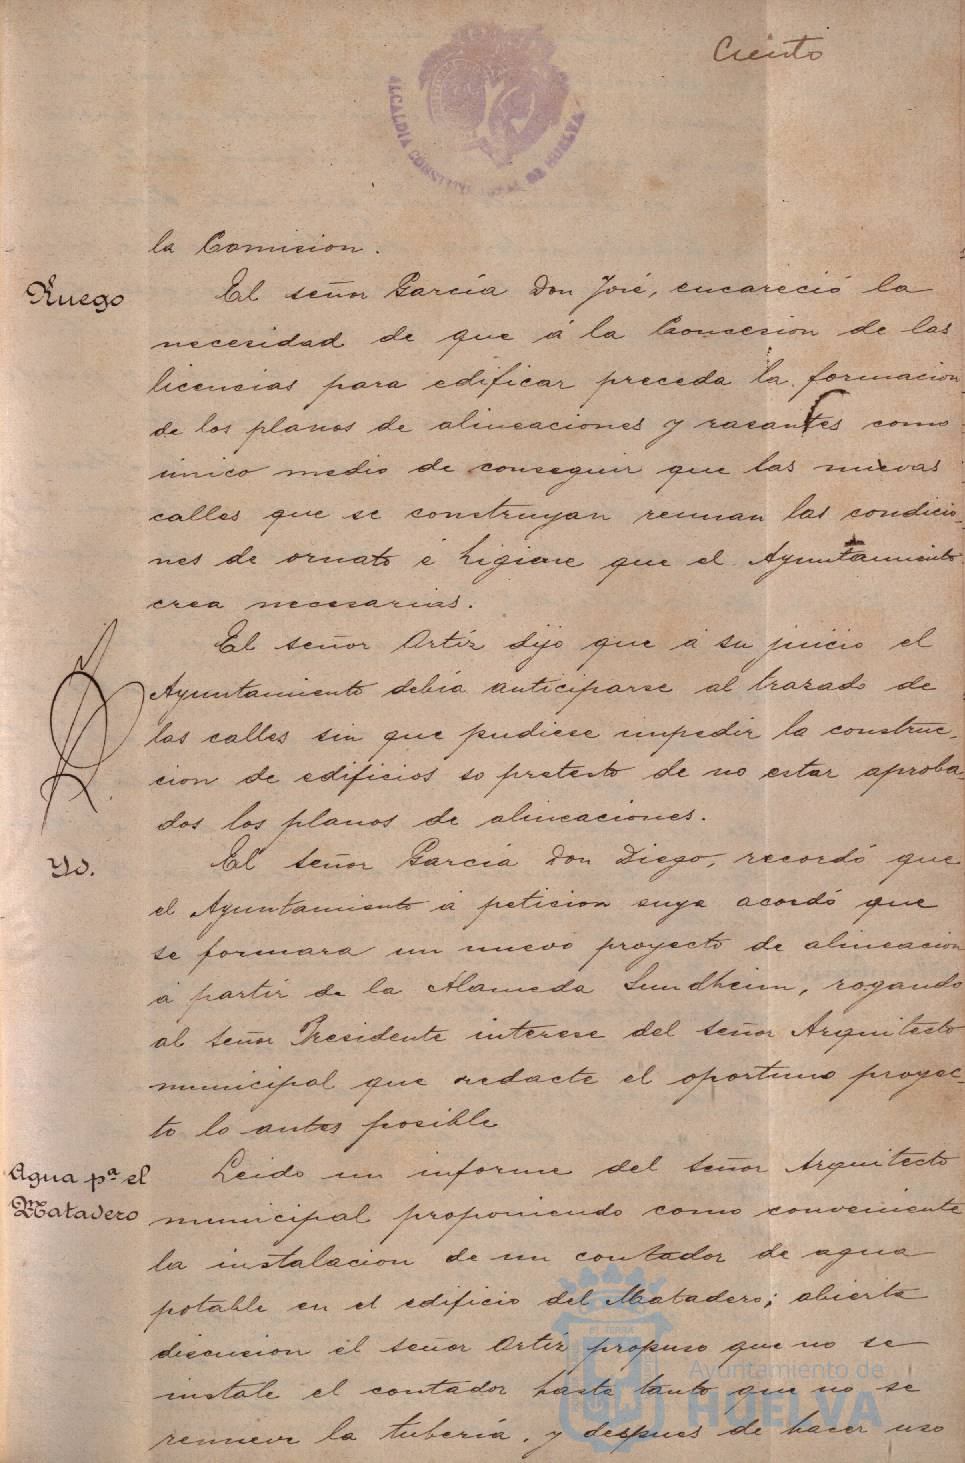 Ciento
ALCALDIA CONSTITUCIONAL DE HUELVA
la Comision.
Ruego
El señor García Don José, encareció la
necesidad de que á la Concesion de las
licencias para edificar preceda la formacion
de los planos de alineaciones y rasantes como
único medio de conseguir que las nuevas
calles que se construyan reunan las condicio-
nes de ornato é higiene que el Ayuntamiento
crea necesarias.
El señor Ortíz dijo que á su juicio el
Ayuntamiento debía anticiparse al trazado de
las calles sin que pudiese impedir la construc-
cion de edificios so pretesto de no estar aproba-
dos los planos de alineaciones.
Yd.
El señor García Don Diego, recordó que
el Ayuntamiento á peticion suya acordó que
se formara un nuevo proyecto de alineacion
á partir de la Alameda Sundheim, rogando
al señor Presidente interese del señor Arquitecto
municipal que redacte el oportuno proyec-
to lo antes posible
Agua pª el
Matadero
Leido un informe del señor Arquitecto
municipal proponiendo como conveniente
la instalacion de un contador de agua
potable en el edificio del Matadero; abierta
discusion el señor Ortíz propuso que no se
instale el contador hasta tanto que no se
renueve la tubería, y despues de hacer uso
Ayuntamiento de
HUELVA